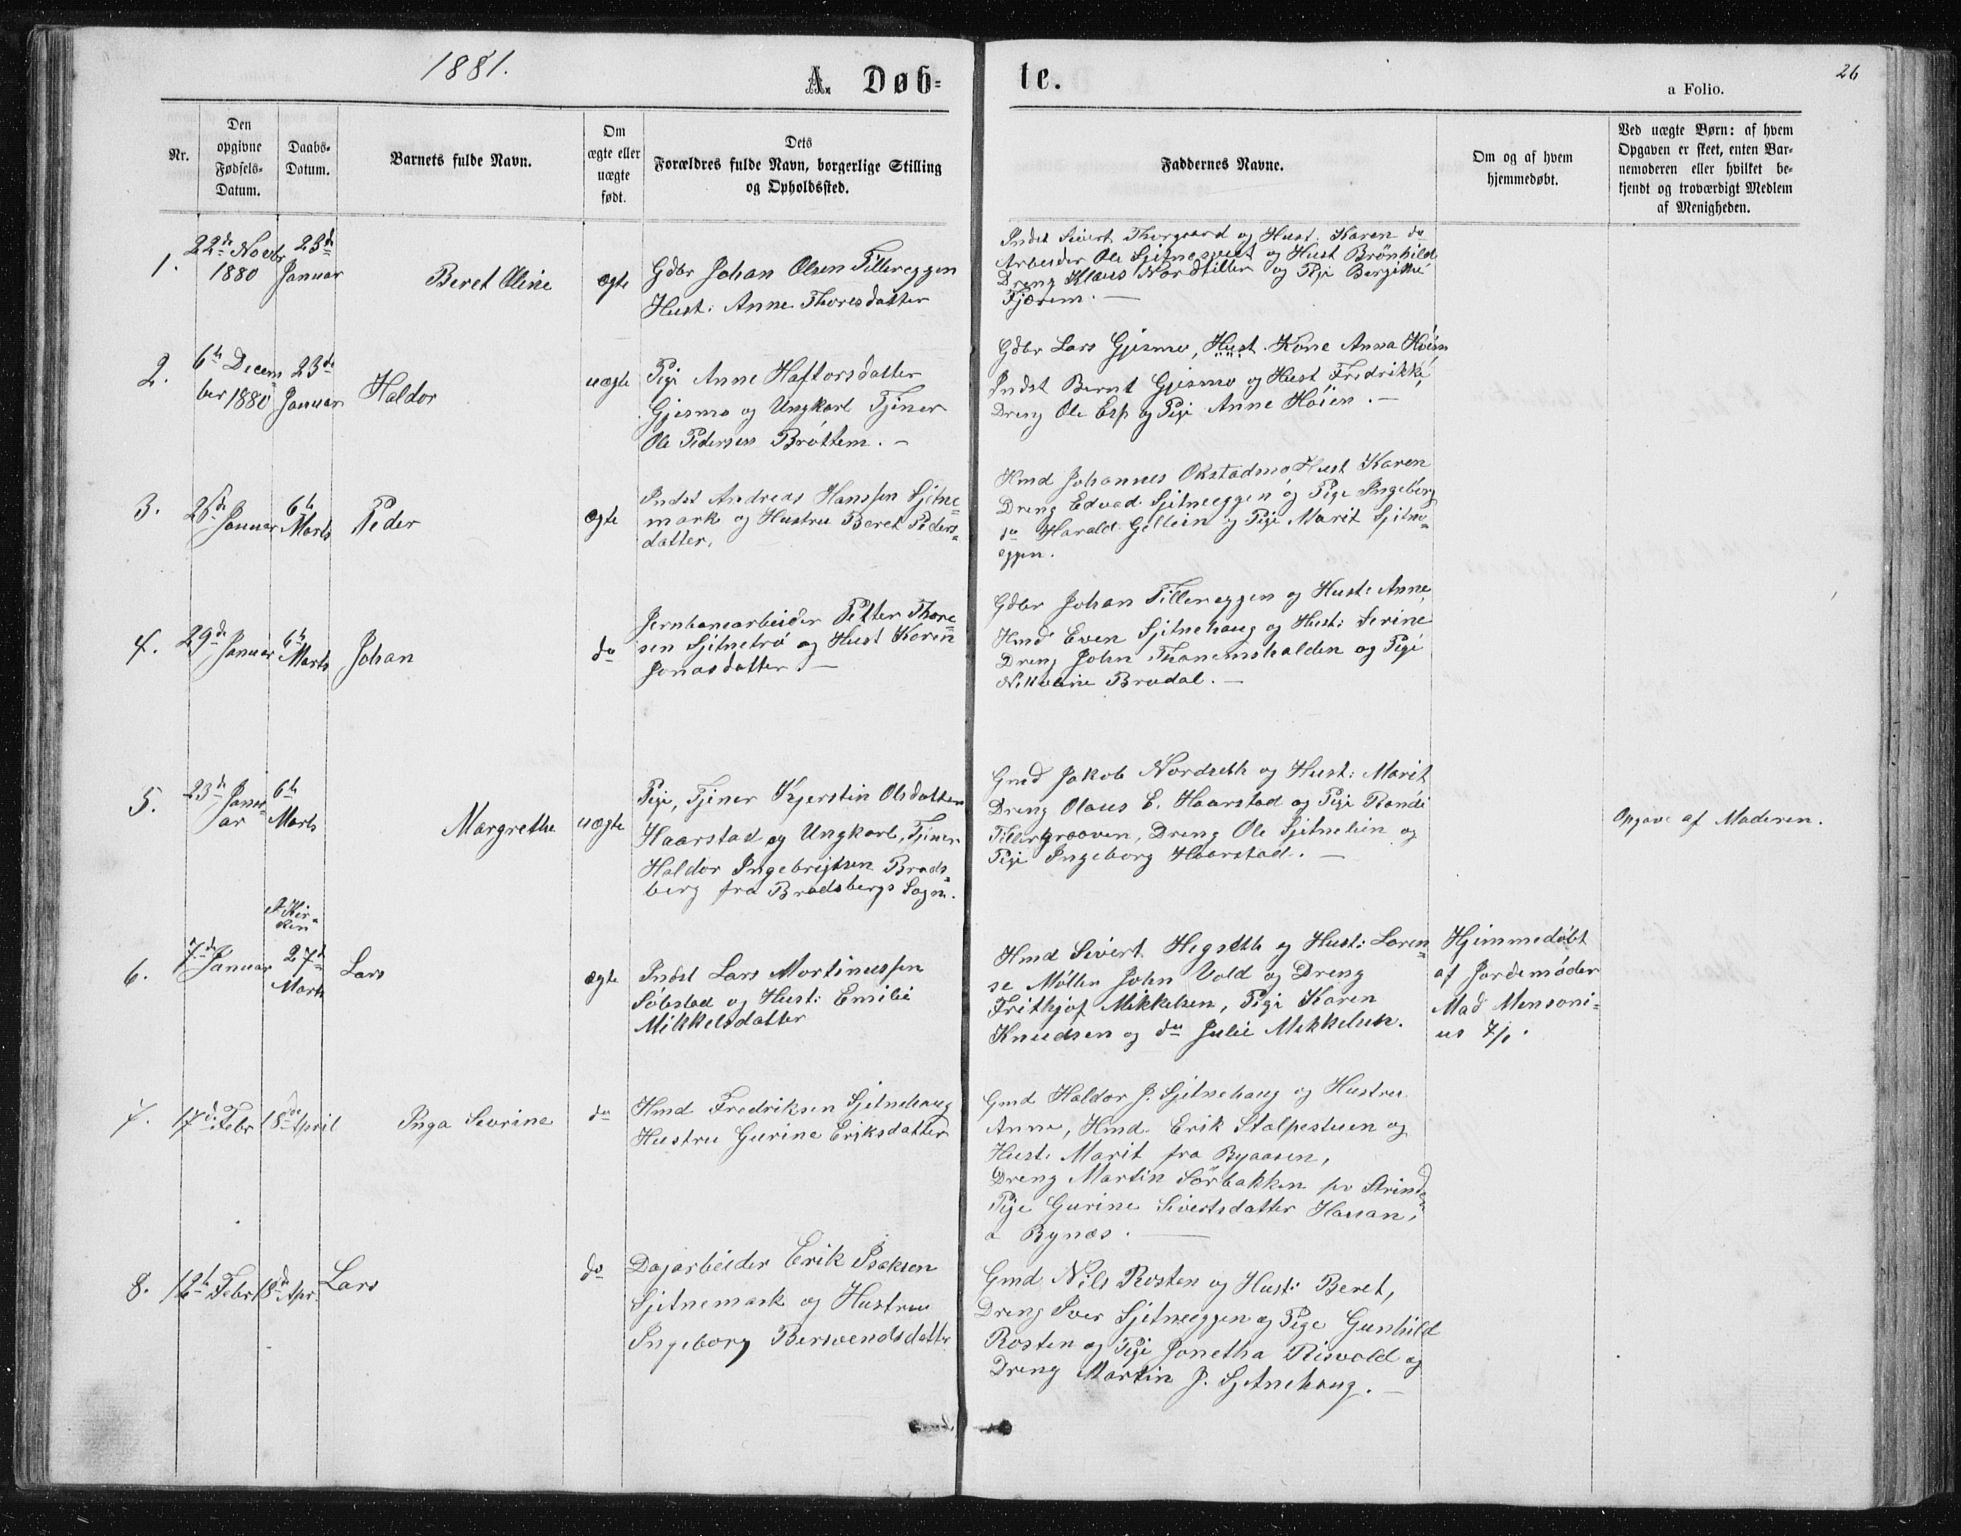 1881.
A. Døb-
te.
26
a Folio.
Nr.
Den
opgivne
Fødsels-
Datum.
Daabs-
Datum.
Barnets fulde Navn.
Om
ægte eller
uægte
født.
Dets
Forældres fulde Navn, borgerlige Stilling
og Opholdssted.
Faddernes Navne.
Om og af hvem
hjemmedøbt.
Ved uægte Børn: af hvem
Opgaven er skeet, enten Bar-
nemoderen eller hvilket be-
kjendt og troværdigt Medlem
af Menigheden.
1.
22de Novbr
1880
23de
Januar
Beret Oline
ægte
Gdbr Johan Olsen Tillereggen
Hust: Anne Thoresdatter
Indst Sivert Thorgaard og Hust. Karen do
Arbeider Ole Sjetnesveet og Hust Brönhild
Dreng Klaus Nordtiller og Pige Bergitthe
Tjærem. —
2.
6te Decem
ber 1880
23de
Januar
Haldor
uægte
Pige Anne Haftorsdatter
Gjesmo og Ungkarl Tjener
Ole Pedersen Bröttem. —
Gdbr Lars Gjesmo, Hust. Kone Anna Höien
Indst Bernt Gjesmo og Hust Fredrikke,
Dreng Ole Esp og Pige Anne Höien. —
3.
Januar
6te
Marts
Peder
ægte
Indst Andreas Hanssen Sjetne-
mark og Hustru Beret Peders-
datter.
Hmd Johannes Okstadmo Hust Karen
Dreng Edvad Sjetneeggen og Pige Ingeborg
do Harald Gellein og Pige Marit Sjetne-
eggen.
4.
29de Januar
6te
Marts
Johan
do
Jernbanearbeider Petter Thore-
sen Sjetnetrö og Hust Karen
Jonasdatter. —
Gdbr Johan Tillereggen og Hust: Anne
Hmd Even Sjetnehaug og Hust: Serine
Dreng John Thanemshalden og Pige
Nikoline Bradal. —
5.
23de Janu-
ar
6te
Marts
Margrethe
uægte
Pige, Tjener Kjerstin Olsdatter
Haarstad og Ungkarl, Tjener
Haldor Ingebrigtsen Brads-
berg fra Bradsbergs Sogn.
Gmd Jakob Nordseth og Hust: Marit
Dreng Olaus E. Haarstad og Pige Randi
Tillergraaven, Dreng Ole Sjetnelien og
Pige Ingeborg Haarstad. —
Opgave af Moderen.
6.
7de Januar
I Kir-
ken
27de
Marts
Lars
ægte
Indst Lars Martinussen
Söbstad og Hust: Emilie
Mikkelsdatter
Hmd Sivert Hegseth og Hust: Loren-
se Møller John Vold og Dreng
Frithjof Mikkelsen, Pige Karen
Knudsen og do Julie Mikkelsen.
Hjemmedöbt
af Jordemöder
Mad Mensoni-
us 7/1.
7.
17de Febr
18de April
Inga Sevrine
do
Hmd Fredriksen Sjetnehaug
Hustru Gurine Eriksdatter
Gmd Haldor J. Sjetnehaug og Hustru
Anne, Hmd Erik Stalpestuen og
Hust: Marit fra Byaasen,
Dreng Martin Sörbakken fra Strinda
Pige Gurine Sivertsdatter
a Bynæs. —
8.
12te Febr
18de Apr.
Lars
do
Dagarbeider Erik Isaksen
Sjetnemark og Hustru
Ingeborg Bersvendsdatter
Gmd Nils Rosten og Hust: Beret,
Dreng Iver Sjetneeggen og Pige Gunhild
Rosten og Pige Jonetha Risvold og
Dreng Martin J. Sjetnehaug. —